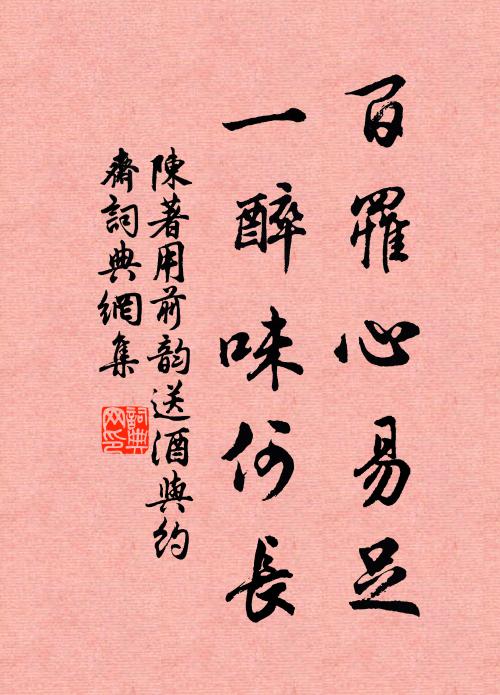 百罹心易足
一醉味何長
陳著用前韵送酒與約
齋詞典網集
詞典
网印